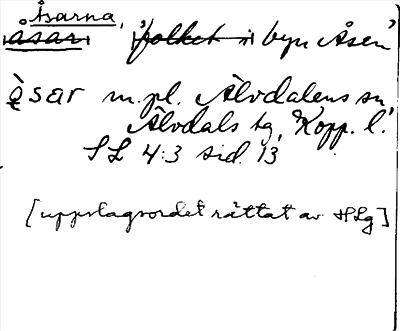 Åsarna,
åsar, 'folket i byn Åsen'
åsar m.pl. Älvdalens sn,
Älvdals tg, Kopp. l.
SL 4:3 sid. 13
[uppslagsordet rättat av HLg]